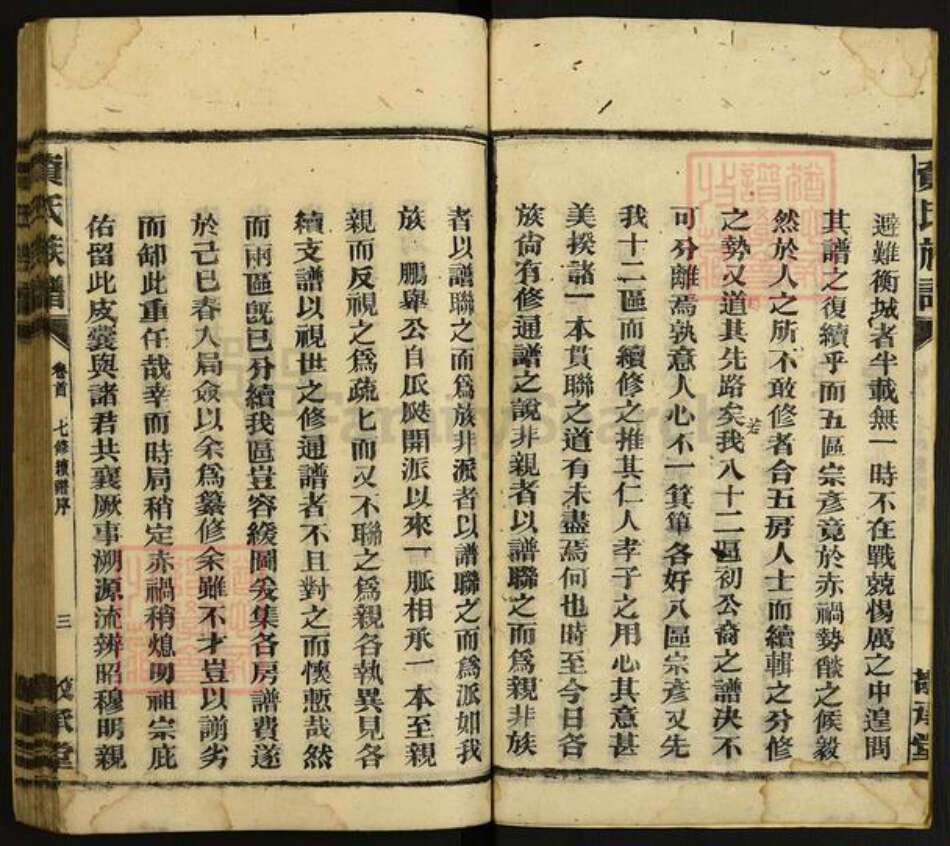 避難衡城者半載無一時不在戰兢惕厲之中遑問
其譜之復續乎而五區宗彥竟於赤禍勢燄之候毅
然於人之所不敢修者合五房人士而續輯之分修
之勢又道其先路矣我八十二區初公裔之譜決不
若
可分離焉孰意人心不一箕箄各好八區宗彥又先
我十二區而續修之推其仁人孝子之用心其意甚
美揆諸一本貫聯之道有未盡焉何也時至今日各
族尙有修通譜之說非親者以譜聯之而爲親非族
者以譜聯之而爲族非派者以譜聯之而爲派如我
族 鵬舉公自瓜瓞開派以來一脈相承一本至親
親而反視之爲疏七而又不聯之爲親各執異見各
續支譜以視世之修通譜者不且對之而慙哉然
而兩區旣已分續我區豈容緩圖爰集各房譜費遂
於己巳春入局僉以余爲纂修余雖不才豈以謭劣
而卸此重任哉幸而時局稍定赤禍稍熄叨祖宗庇
佑留此皮囊與諸君共襄厥事溯源流辨昭穆明親
氏族譜
卷首
七修續譜序
三
承堂